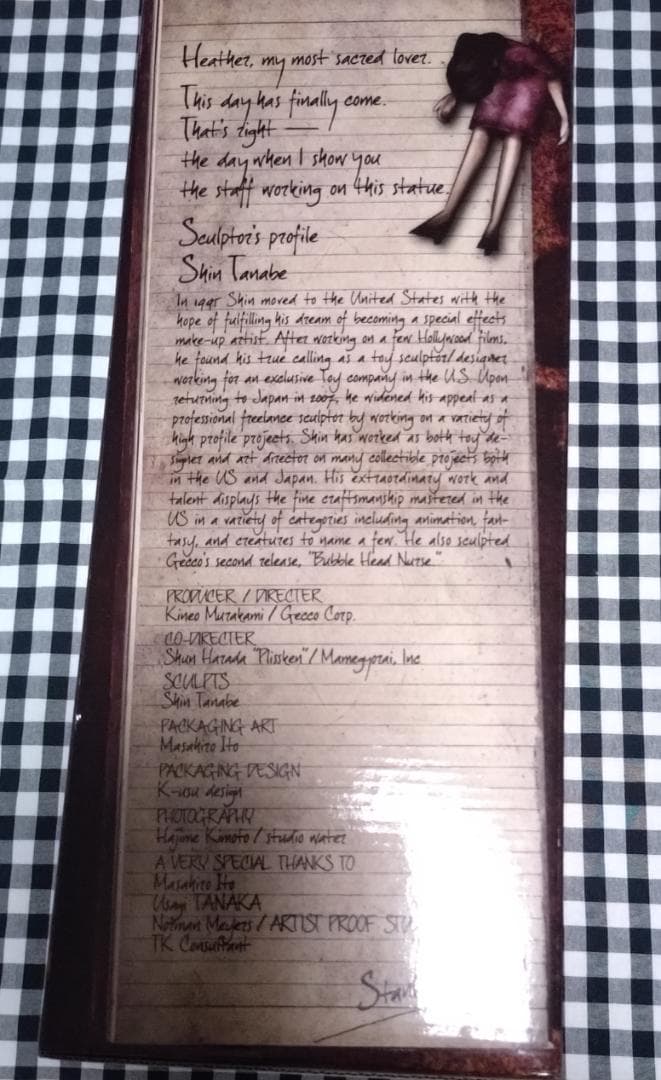 Heather, my most sacred lover.
This day has finally come.
That's right —
the day when I show you
the staff working on this statue.
Sculptor's profile
Shin Tanabe
In 1995 Shin moved to the United States with the
hope of fulfilling his dream of becoming a special effects
make-up artist. After working on a few Hollywood films,
he found his true calling as a toy sculptor/designer
working for an exclusive Toy company in the U.S. Upon
returning to Japan in 2007, he widened his appeal as a
professional freelance sculptor by working on a variety of
high profile projects. Shin has worked as both toy de-
signer and art director on many collectible projects both
in the US and Japan. His extraordinary work and
talent displays the fine craftsmanship mastered in the
US in a variety of categories including animation, fan-
tasy, and creatures to name a few. He also sculpted
Gecco's second release, "Bubble Head Nurse."
PRODUCER / DIRECTER
Kineo Murakami / Gecco Corp.
CO-DIRECTER
Shun Harada "Plissken" / Mamegyorai, Inc
SCULPTS
Shin Tanabe
PACKAGING ART
Masahiro Ito
PACKAGING DESIGN
K-usu design
PHOTOGRAPHY
Hajime Kimoto / studio water
A VERY SPECIAL THANKS TO
Masahiro Ito
Usagi TANAKA
Norman Meyers / ARTIST PROOF
TK Consultant